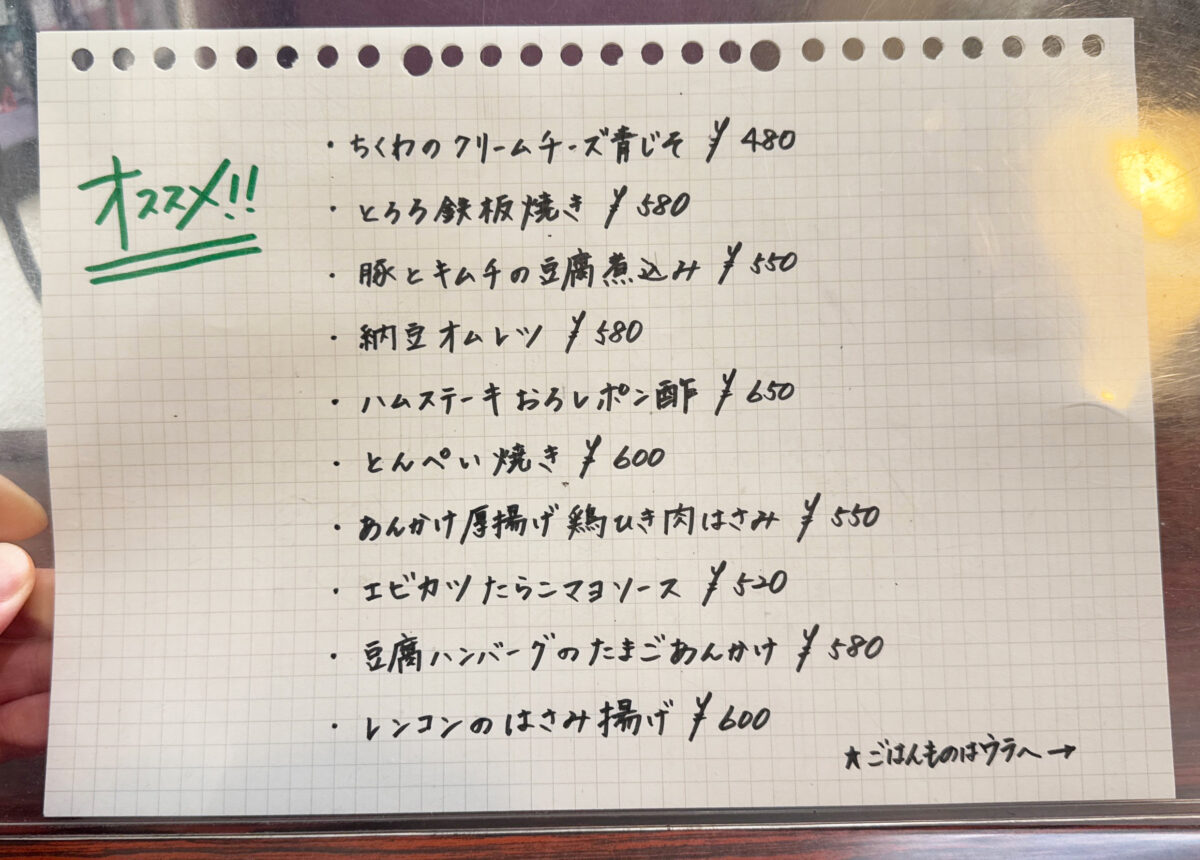 オススメ!!
・ちくわのクリームチーズ青じそ ¥480
・とろろ鉄板焼き ¥580
・豚とキムチの豆腐煮込み ¥550
・納豆オムレツ ¥580
・ハムステーキおろしポン酢 ¥650
・とんぺい焼き ¥600
・あんかけ厚揚げ鶏ひき肉はさみ ¥550
・エビカツたらこマヨソース ¥520
・豆腐ハンバーグのたまごあんかけ ¥580
・レンコンのはさみ揚げ ¥600
★ごはんものはウラへ→